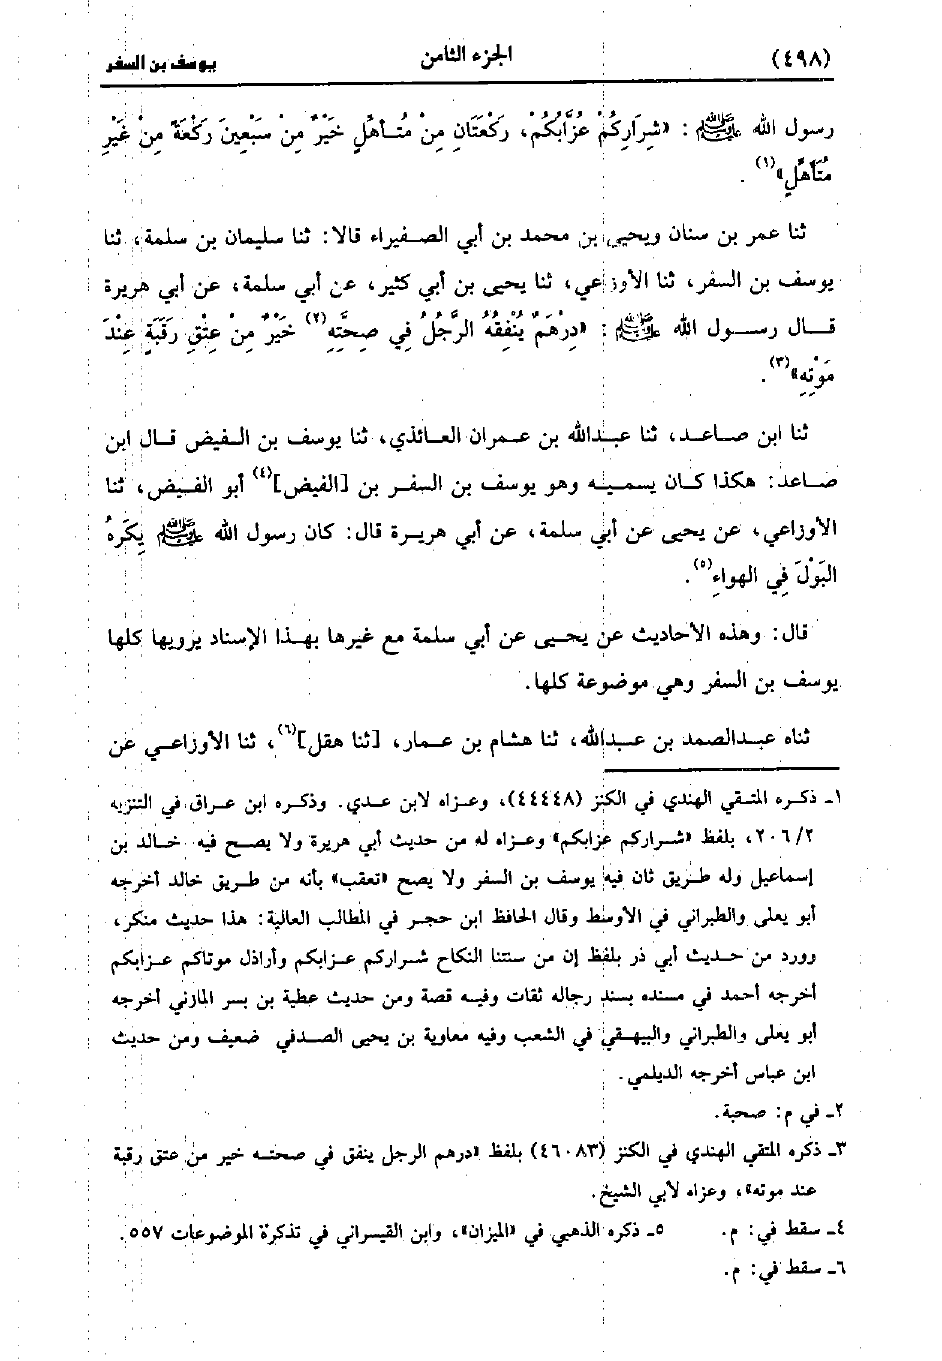 (٤٩٨) الجزء الثامن يوسف بن السفر
رسول الله ﷺ : «شِرَارِكُمْ عُزَّابِكُمْ، رَكْعَتَانِ مِنْ مُتَأَهِّلٍ خَيْرٌ مِنْ سَبْعِينَ رَكْعَةً مِنْ غَيْرِ
مُتَأَهِّلٍ»(١) .
ثنا عمر بن سنان ويحيى بن محمد بن أبي الصفيراء قالا: ثنا سليمان بن سلمة، ثنا
يوسف بن السفر، ثنا الأوزاعي، ثنا يحيى بن أبي كثير، عن أبي سلمة، عن أبي هريرة
قال رسول الله ﷺ : «دِرْهَمٌ يُنْفِقُهُ الرَّجُلُ فِي صحَّتِهِ(٢) خَيْرٌ مِنْ عِتْقِ رَقَبَةٍ عِنْدَ
مَوْتِهِ»(٣).
ثنا ابن صاعد، ثنا عبدالله بن عمران العائذي، ثنا يوسف بن الفيض قال ابن
صاعد: هكذا كان يسميه وهو يوسف بن السفر بن [الفيض](٤) أبو الفيض، ثنا
الأوزاعي، عن يحيى عن أبي سلمة، عن أبي هريرة قال: كان رسول الله ﷺ يَكْرَهُ
البَوْلَ فِي الهواءِ(٥).
قال: وهذه الأحاديث عن يحيى عن أبي سلمة مع غيرها بهذا الإسناد يرويها كلها
يوسف بن السفر وهي موضوعة كلها.
ثناه عبدالصمد بن عبدالله، ثنا هشام بن عمار، [ثنا هقل](٦)، ثنا الأوزاعي عن
١ـ ذكره المتقي الهندي في الكنز (٤٤٤٤٨)، وعزاه لابن عدي. وذكره ابن عراق في التنزيه
٢٠٦/٢، بلفظ «شراركم عزابكم» وعزاه له من حديث أبي هريرة ولا يصح فيه خالد بن
إسماعيل وله طريق ثان فيه يوسف بن السفر ولا يصح «تعقب» بأنه من طريق خالد أخرجه
أبو يعلى والطبراني في الأوسط وقال الحافظ ابن حجر في المطالب العالية: هذا حديث منكر،
وورد من حديث أبي ذر بلفظ إن من سنتنا النكاح شراركم عزابكم وأراذل موتاكم عزابكم
أخرجه أحمد في مسنده بسند رجاله ثقات وفيه قصة ومن حديث عطية بن بسر المازني أخرجه
أبو يعلى والطبراني والبيهقي في الشعب وفيه معاوية بن يحيى الصدفي ضعيف ومن حديث
ابن عباس أخرجه الديلمي.
٢ـ في م: صحبة.
٣ـ ذكره المتقي الهندي في الكنز (٤٦٠٨٣) بلفظ «درهم الرجل ينفق في صحته خير من عتق رقبة
عند موته»، وعزاه لأبي الشيخ.
٤ـ سقط في: م. ٥ـ ذكره الذهبي في «الميزان»، وابن القيسراني في تذكرة الموضوعات ٥٥٧.
٦ـ سقط في: م.